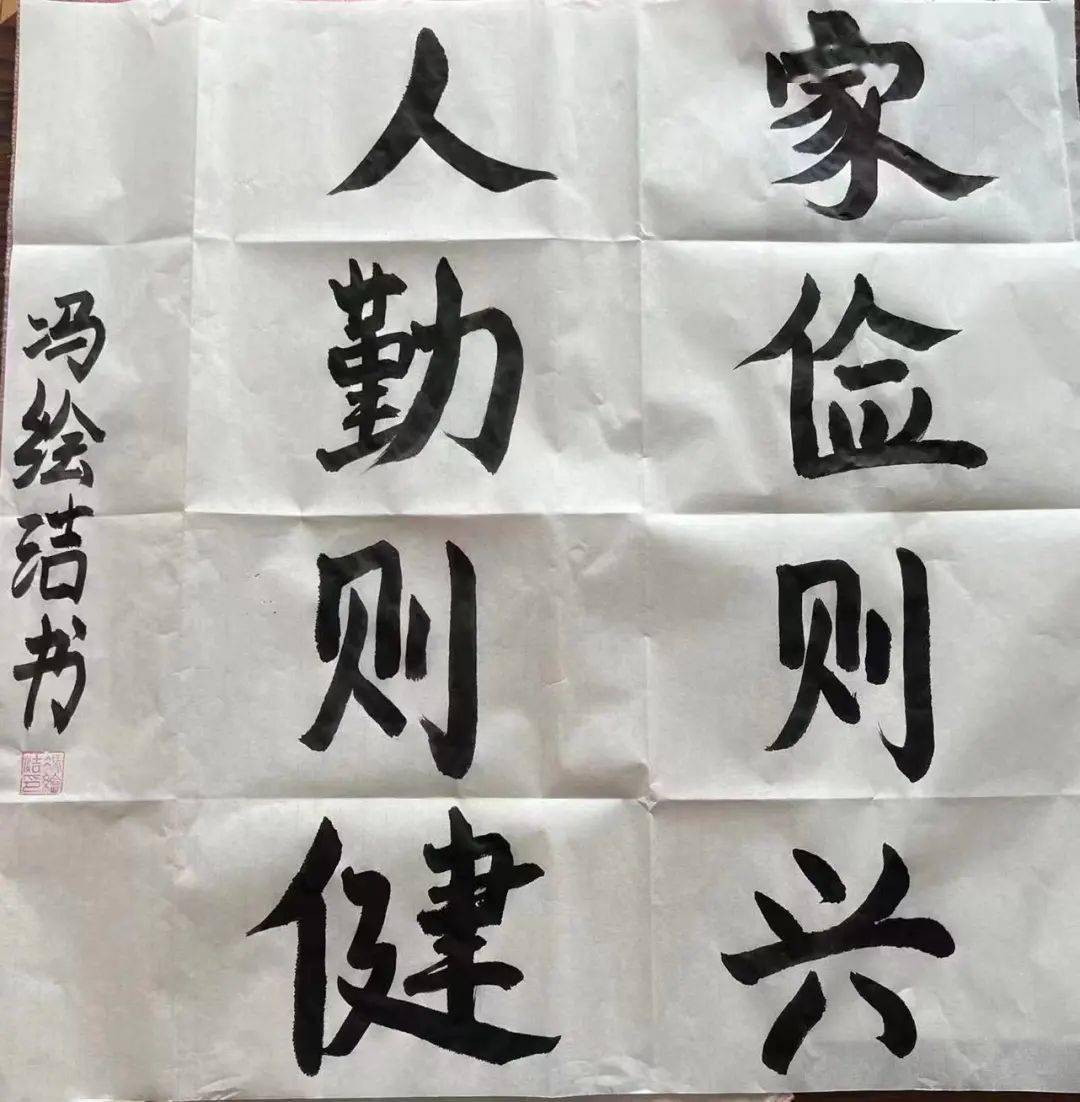 家俭则兴
人勤则健
冯绘洁书